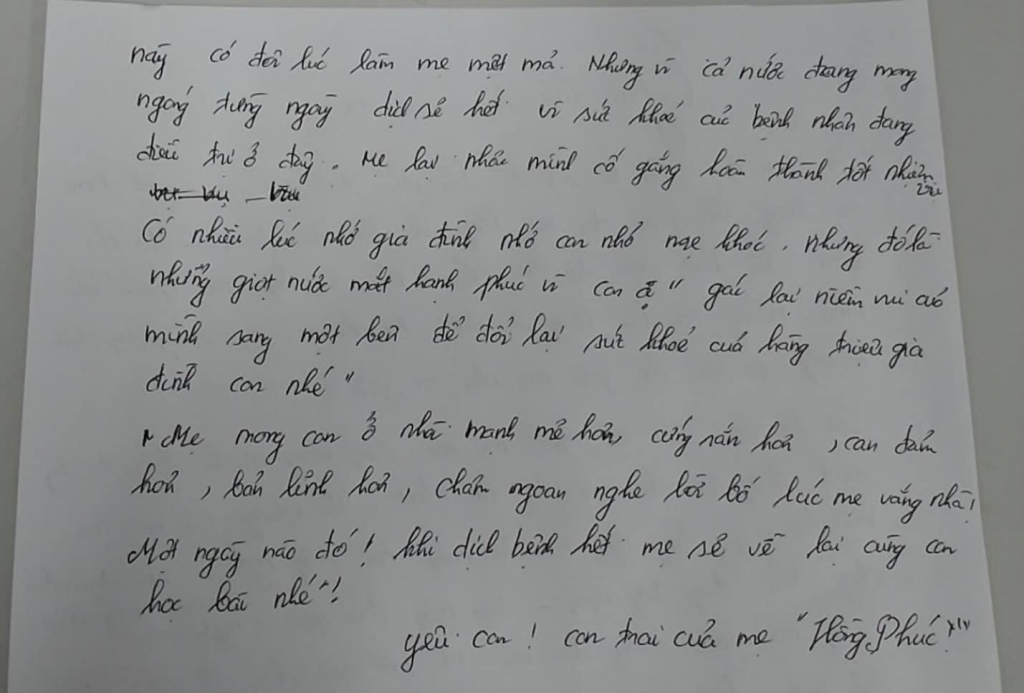 này có đôi lúc làm mẹ mệt mả. Nhưng vì cả nước đang mong
ngóng từng ngày dịch sẻ hết vì sức khoẻ của bệnh nhân đang
điều trị ở đây. Mẹ lại nhắc mình cố gắng hoàn thành tốt nhiệm
vụ
Có nhiều lúc nhớ gia đình nhớ con nhỏ mẹ khóc. Nhưng đó là
những giọt nước mắt hạnh phúc vì con ạ " gác lại niềm vui của
mình sang một bên để đổi lại sức khoẻ của hàng triệu gia
đình con nhé "
Mẹ mong con ở nhà mạnh mẻ hơn, cứng rắn hơn, can đảm
hơn, bản lĩnh hơn, chăm ngoan nghe lời bố lúc mẹ vắng nhà!
Một ngày nào đó! khi dịch bệnh hết mẹ sẻ về lại cùng con
học bài nhé"!
yêu con! con trai của mẹ "Hồng Phúc"